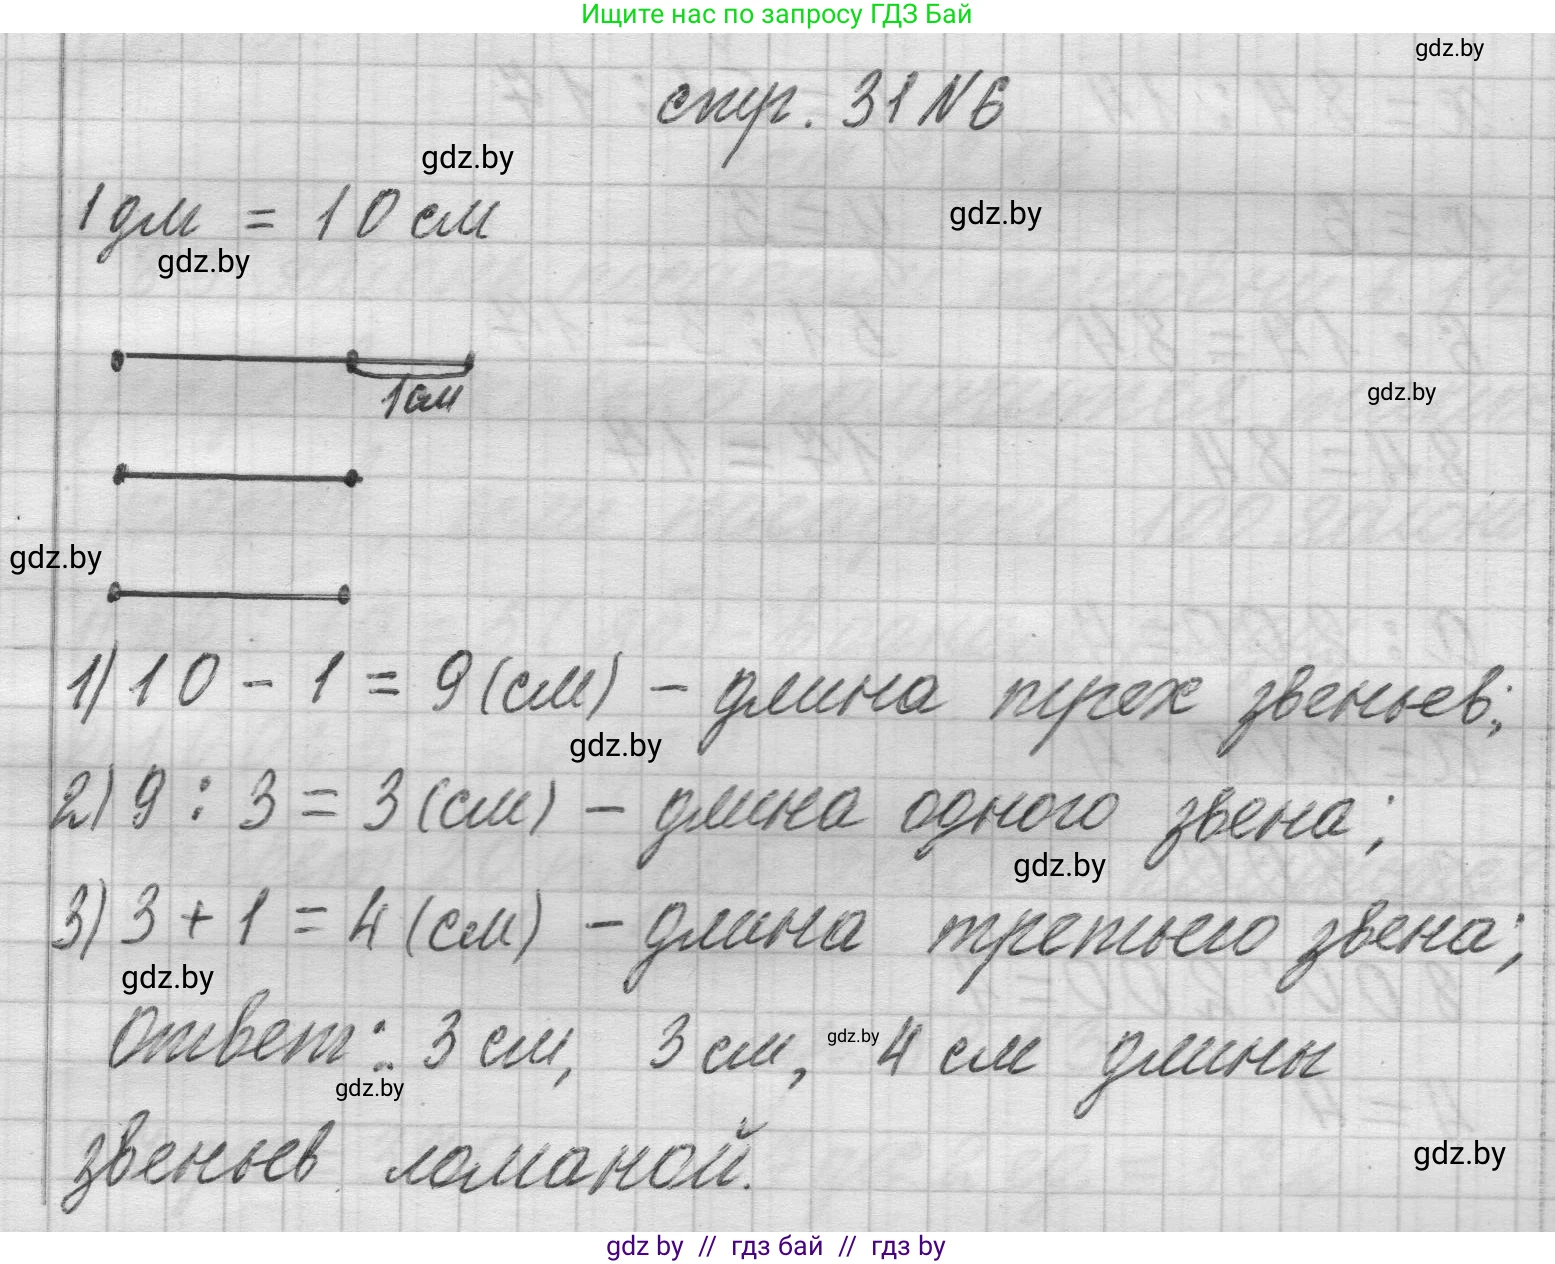 Ищите нас по запросу ГДЗ Бай
gdz.by
стр. 31 N 6
gdz.by
gdz.by
1 дм = 10 см
gdz.by
1 см
gdz.by
gdz.by
1) 10 - 1 = 9 (см) - длина трех звеньев;
gdz.by
2) 9 : 3 = 3 (см) - длина одного звена;
gdz.by
3) 3 + 1 = 4 (см) - длина третьего звена;
gdz.by
Ответ: 3 см, 3 см, 4 см длины
gdz.by
gdz.by
звеньев ломаной.
gdz.by
gdz by // гдз бай // гдз by